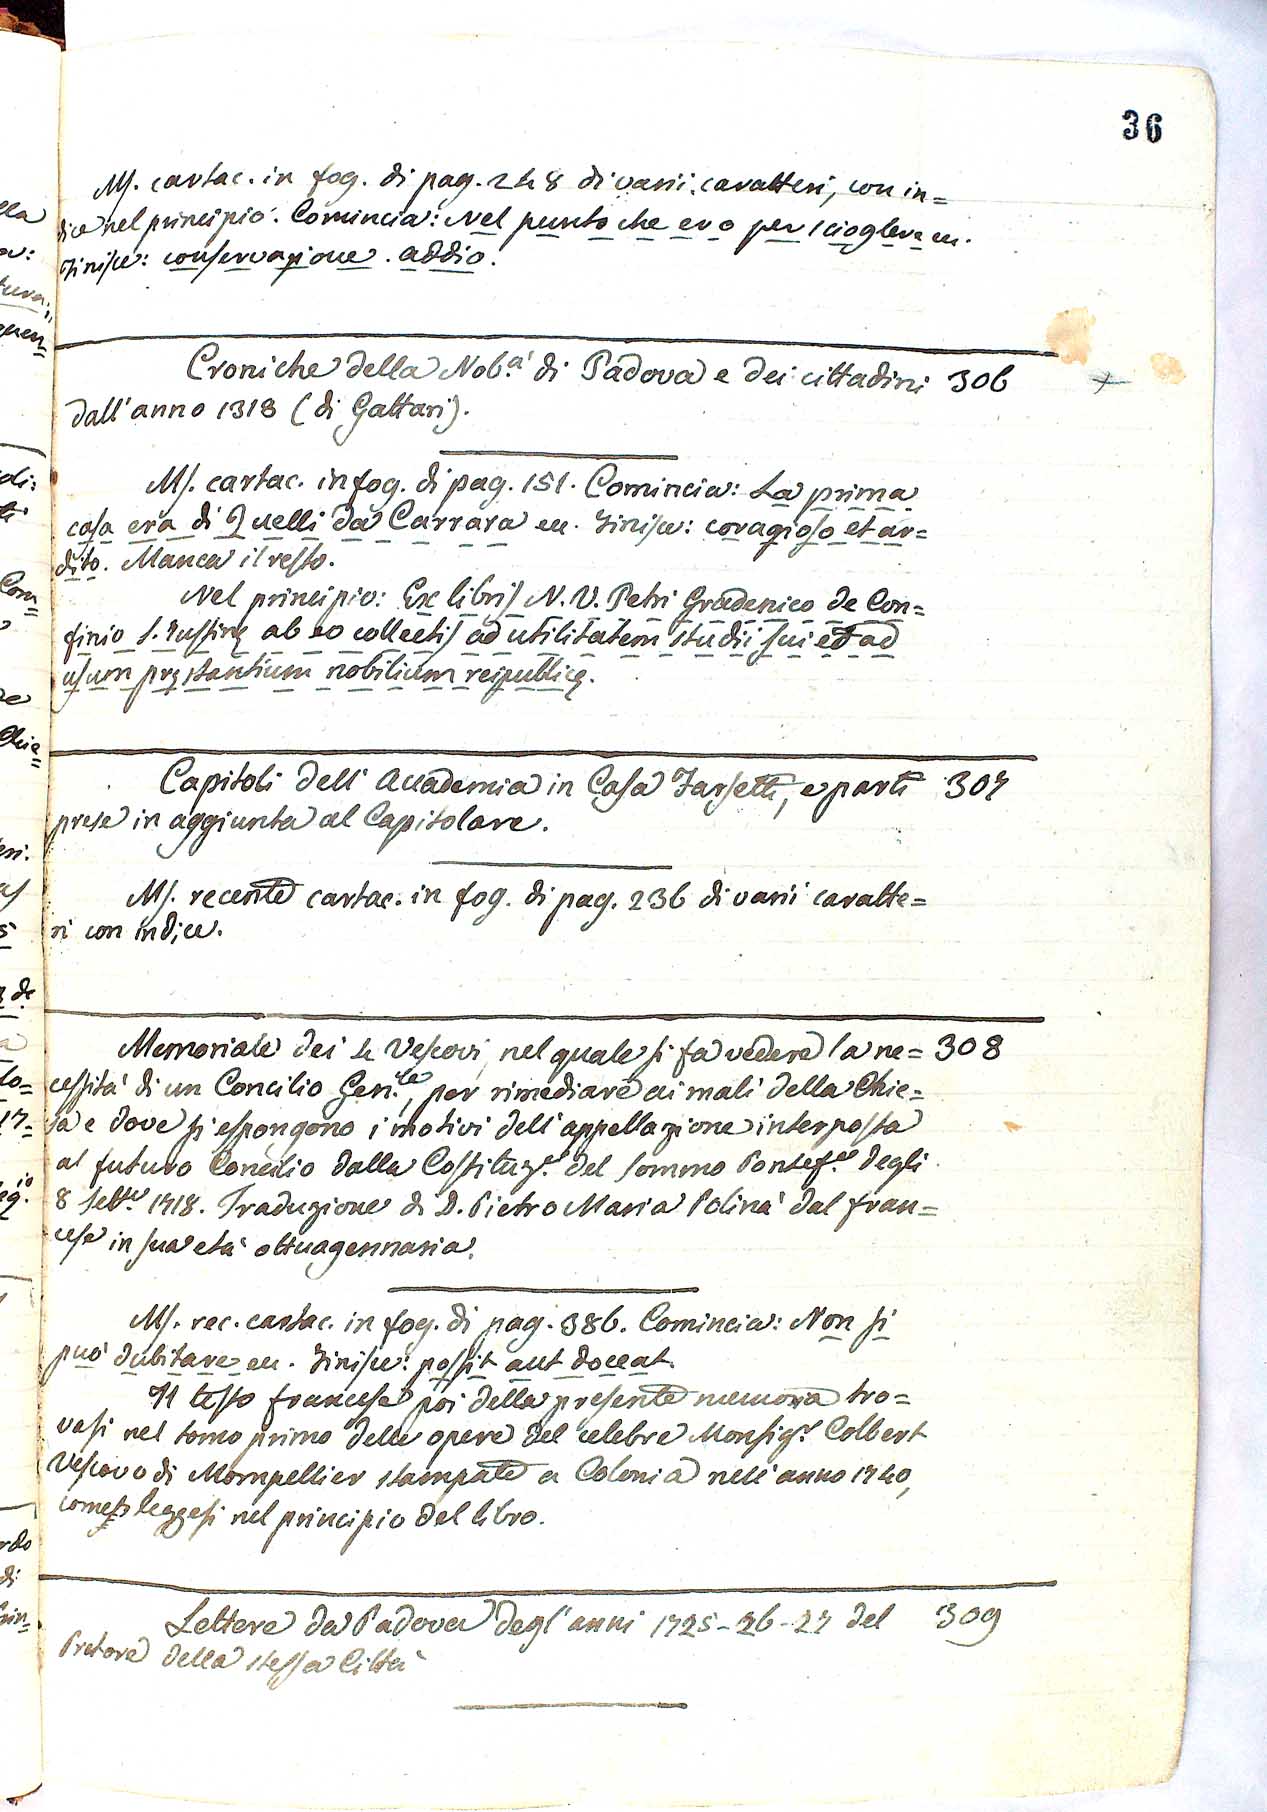 36
Ms. cartac. in fog. di pag. 248 di varii caratteri, con in=
dice nel principio. Comincia: Nel punto che ero per sciogliere ec.
Finisce: conservazione. addio.
Croniche della Nob.à di Padova e dei cittadini 306 +
dall'anno 1318 (di Gattari).
Ms. cartac. in fog. di pag. 151. Comincia: La prima
casa era di Quelli da Carrara ec. Finisce: coragioso et ar=
dito. Manca il resto.
Nel principio: Ex libris N. V. Petri Gradenico de Con=
finio S. Iustinę ab eo collectis ad utilitatem studii sui et ad
usum pręstantium nobilium reipublicę.
Capitoli dell'Accademia in Casa Farsetti, e parti 307
prese in aggiunta al Capitolare.
Ms. recente cartac. in fog. di pag. 236 di varii caratte=
ri con indice.
Memoriale dei 4 Vescovi, nel quale si fa vedere la ne= 308
cessità di un Concilio Gen.le, per rimediare ai mali della Chie=
sa e dove si espongono i motivi dell'appellazione interposta
al futuro Concilio dalla Costituz.e del Sommo Pontef.e degli
8 Sett.e 1718. Traduzione di D. Pietro Maria Polinà dal fran=
cese in sua età ottuagennaria.
Ms. rec. cartac. in fog. di pag. 386. Comincia: Non si
può dubitare ec. Finisce: possit aut doceat.
Il testo francese poi della presente memoria tro=
vasi nel tomo primo delle opere del celebre Monsig.r Colbert
Vescovo di Mompellier stampate a Colonia nell'anno 1740,
come leggesi nel principio del libro.
Lettere da Padova degl'anni 1725-26-27 del 309
Pretore della stessa Città